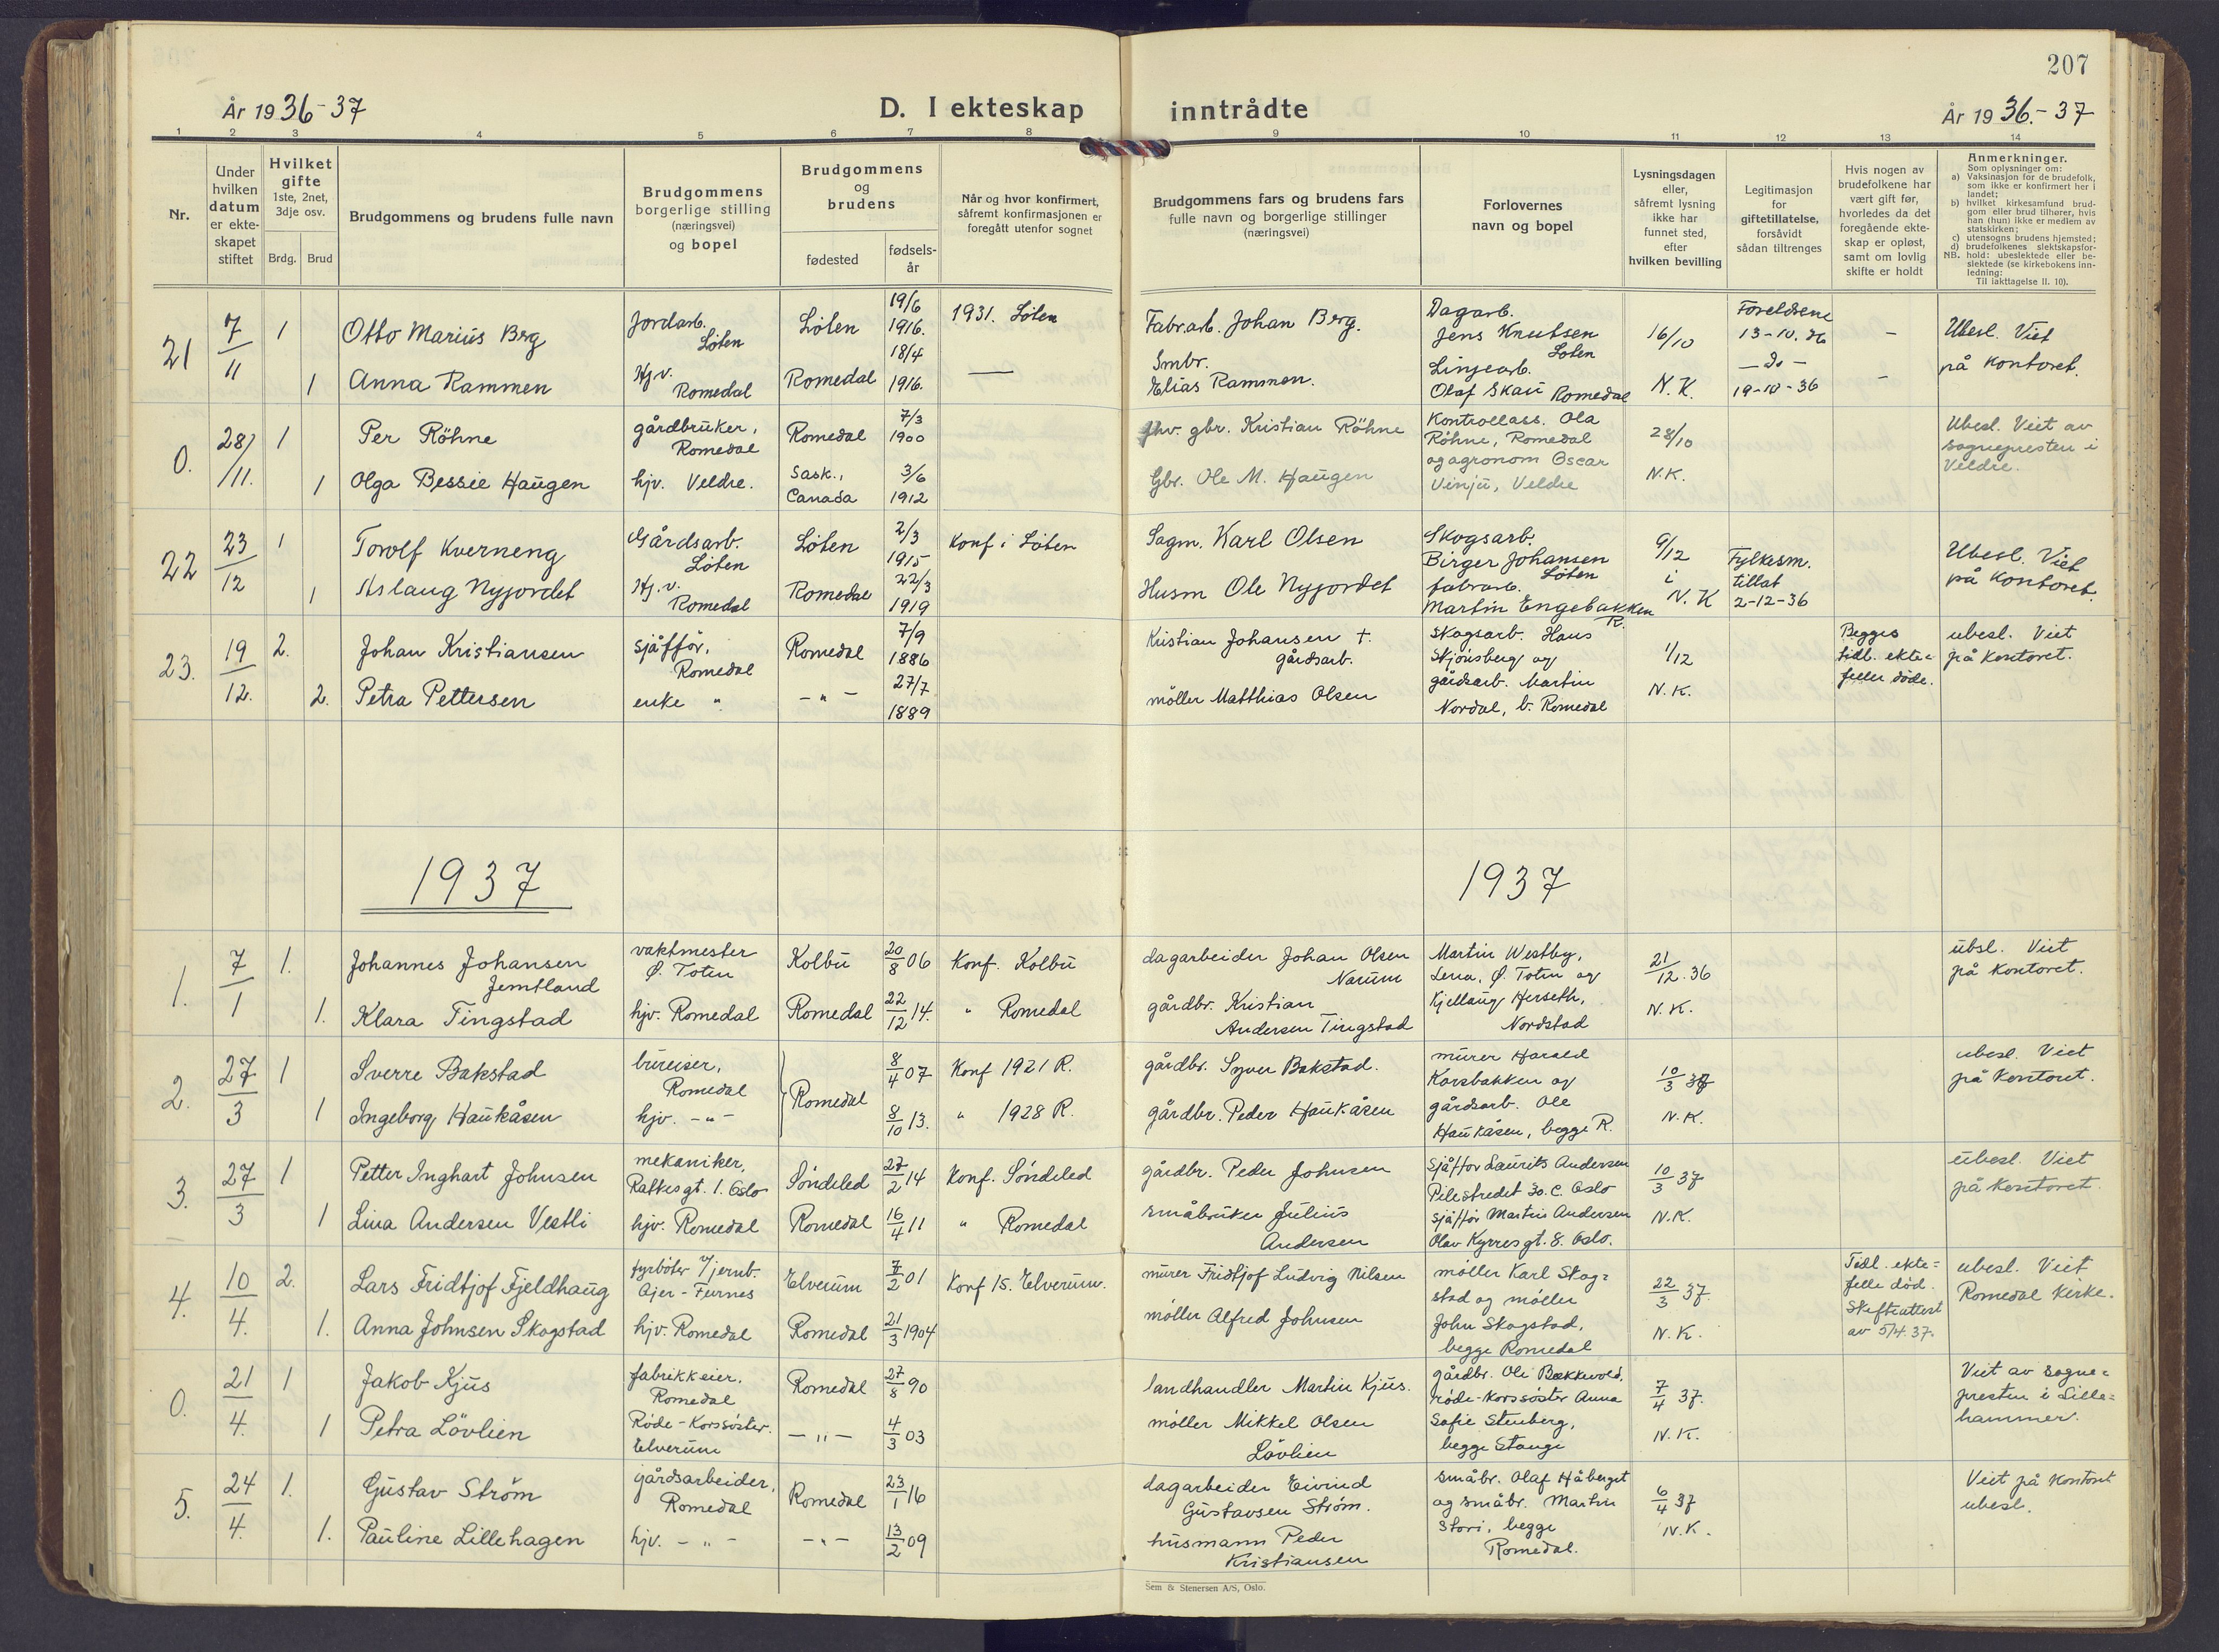 207
År 1936-37
D. I ekteskap inntrådte
År 1936.-37
1 2 3 4 5 6 7 8 9 10 11 12 13 14
Nr.
Under hvilken datum er ekte-skapet stiftet
Hvilket gifte 1ste, 2net, 3dje osv.
Brdg. Brud
Brudgommens og brudens fulle navn
Brudgommens borgerlige stilling (næringsvei) og bopel
Brudgommens og brudens
fødested
fødsels-år
Når og hvor konfirmert, såfremt konfirmasjonen er foregått utenfor sognet
Brudgommens fars og brudens fars fulle navn og borgerlige stillinger (næringsvei)
Forlovernes navn og bopel
Lysningsdagen eller, såfremt lysning ikke har funnet sted, efter hvilken bevilling
Legitimasjon for giftetillatelse, forsåvidt sådan tiltrenges
Hvis nogen av brudefolkene har vært gift før, hvorledes da det foregående ekte-skap er opløst, samt om lovlig skifte er holdt
Anmerkninger.
Som oplysning om:
a) Vaksinasjon for de brudefolk, som ikke er konfirmert her i landet;
b) hvilket kirkesamfund brud-gom eller brud tilhører, hvis han (hun) ikke er medlem av statskirken;
c) utensogns brudens hjemsted;
d) brudefolkenes slektskapsfor-
NB. hold: ubeslektede eller be-slektede (se kirkebokens inn-ledning:
Til iakttagelse II. 10).
21 7/11 1 Otto Marius Brg Jordarb. Löten Löten 19/6 1916. 1931. Löten Fabr.arb. Johan Brg. Dagarb. Jens Knutsen Löten 16/10 Foreldrene 13-10.36 - Ubesl. Viet
1 Anna Rammen Hj.v. Romedal Romedal 18/4 1916. — Smbr. Elias Rammen. Linjearb. Olaf Skau Romedal N.K. -do- 19-10-36 - på kontoret.
0. 28/11. 1 Per Röhne gårdbruker, Romedal Romedal 7/3 1900 fhv. gbr. Kristian Röhne Kontrollass. Ola Röhne, Romedal 28/10 Ubesl. Viet av
1 Olga Bessie Haugen hjv. Veldre. Sask., Canada 3/6 1912 Gbr. Ole M. Haugen og agronom Oscar Vinju, Veldre N.K. sognepresten i Veldre.
22 23/12 1 Torolf Kverneng Gårdsarb. Löten Löten 2/3 1915 Konf i Löten Sagm. Karl Olsen Skogsarb. Birger Johansen Löten 9/12 i Fylkesm. Ubesl. Viet
1 Aslaug Nyjordet Hj.v. Romedal Romedal 22/3 1919 Husm Ole Nyjordet fabrarb. Martin Engebakken R. N.K tillat 2-12-36 på kontoret.
23. 19/12. 2. Johan Kristiansen sjåffør, Romedal Romedal 7/9 1886 Kristian Johansen †. gårdsarb. Skogsarb. Hans Skjönsberg og 1/12 Begges tidl. ekte= ubesl. Viet
2. Petra Pettersen enke " - " - 27/7 1889 möller Matthias Olsen gårdsarb. Martin Nordal, b. Romedal N.K. feller döde. på kontoret.
1937 1937
1. 7/1 1. Johannes Johansen Jemtland vaktmester Ø. Toten Kolbu 20/8 06 Konf. Kolbu dagarbeider Johan Olsen Narum Martin Westby, Lena, Ø. Toten og 21/12.36 übsl. Viet
1. Klara Tingstad hjv. Romedal Romedal 22/12 14. " Romedal gårdbr. Kristian Andersen Tingstad Kjellaug Herseth, Nordstad N.K. på kontoret.
2. 27/3 1 Sverre Bakstad bureiser, Romedal Romedal 8/4 07 Konf 1921 R. gårdbr. Syver Bakstad. murer Harald Korsbakken og 10/3 37 ubesl. Viet
1 Ingeborg Haukåsen hjv. - " - 8/10 13. " 1928 R. gårdbr. Peder Haukåsen gårdsarb. Ole Haukåsen, begge R. N.K. på kontoret.
3. 27/3 1 Petter Inghart Johnsen mekaniker, Ratkes gt. 1. Oslo Söndeled 27/2 14 Konf. Söndeled gårdbr. Peder Johnsen sjåffør Laurits Andersen Pilestredet 30.C. Oslo 10/3 37 ubesl. Viet
1 Lina Andersen Vestli hjv. Romedal Romedal 16/4 11 " Romedal småbruker Julius Andersen sjåffør Martin Andersen Olav Kyrres gt. 8. Oslo. N.K. på kontoret
4. 10/4. 2. Lars Fridtjof Fjeldhaug fyrböter v/jernb. Ajer-Furnes Elverum 7/2 01 Konf 15. Elverum. murer Fridtjof Ludvig Nilsen möller Karl Skog= stad og möller 22/3 37. Tidl. ekte= felle död. ubesl. Viet
1. Anna Johnsen Skogstad hjv. Romedal Romedal 21/3 1904 möller Alfred Johnsen John Skogstad, begge Romedal N.K. Skifteattest av 5/4.37. Romedal kirke.
0. 21/4. 1 Jakob Kjus fabrikkeier. Romedal Romedal 27/8 90 landhandler Martin Kjus. gårdbr. Ole Bækkevold, röde-korssöster Anna 7/4 37. Viet av sogne=
1 Petra Lövlien Röde-Korssöster. Elverum - " - 4/3 03 möller Mikkel Olsen Lövlien Sofie Stenberg, begge Stange N.K. presten i Lille= hammer.
5. 24/4. 1. Gustav Ström gårdsarbeider, Romedal Romedal 23/1 16 dagarbeider Eivind Gustavsen Ström. småbr. Olaf Håberget og småbr. Martin 6/4 37 Viet på kontoret
1. Pauline Lillehagen hjv. - " - - " - 13/2 09 husmann Peder Kristiansen Stori, begge Romedal. N.K. ubesl.
Sem & Stenersen A/S, Oslo.